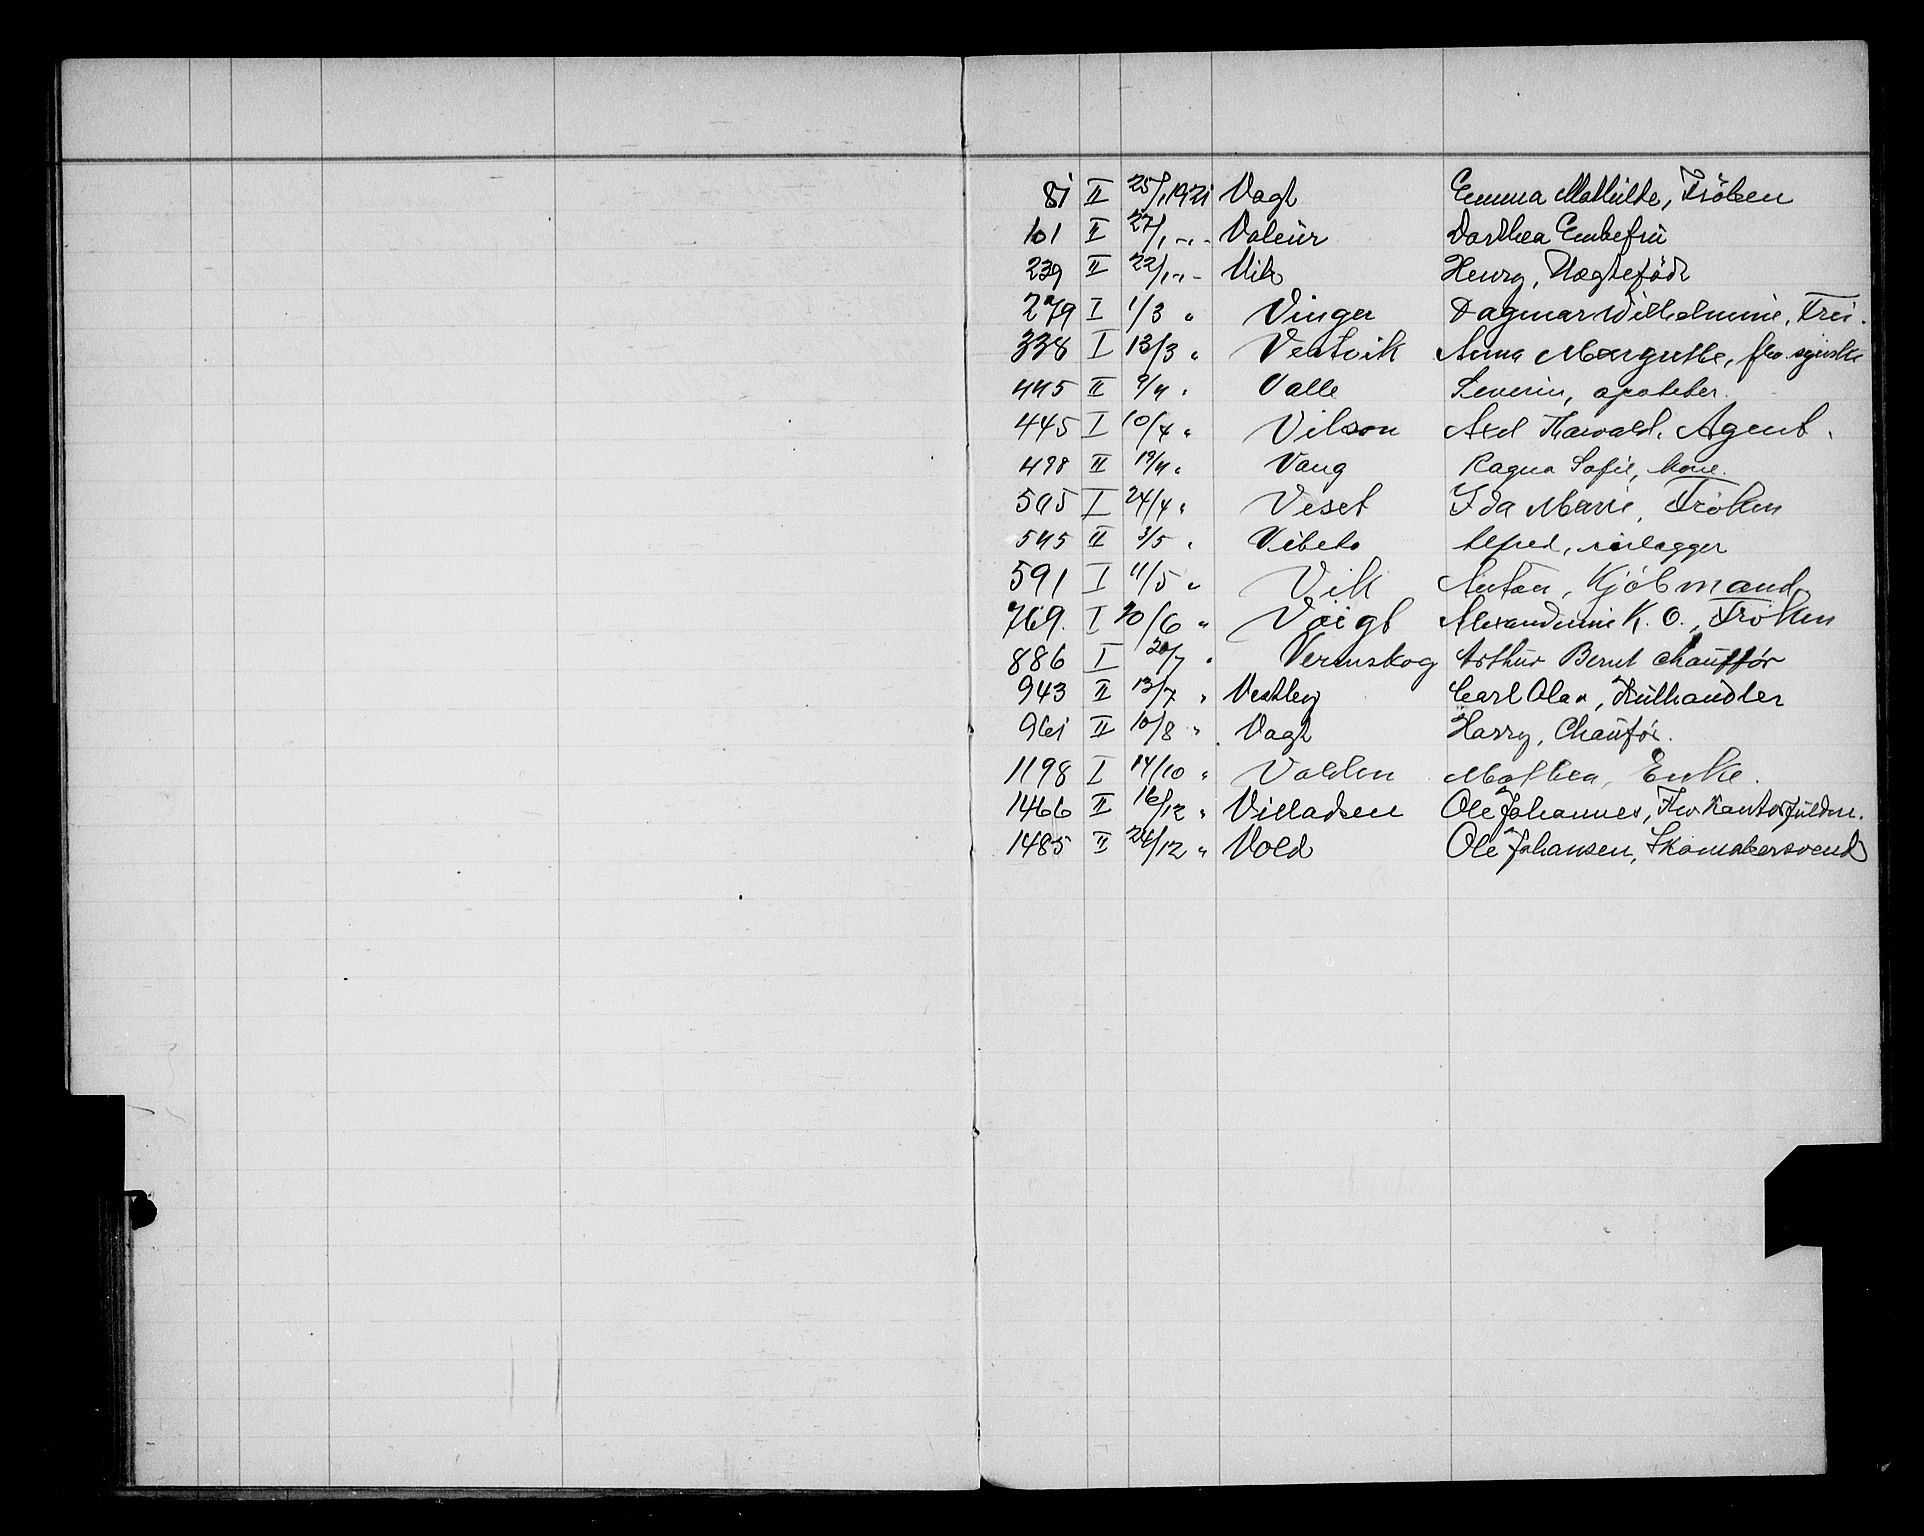 81 II 25/1 1921 Vogt Emma Mathilde, Fröken
101 II 27/1 -"- Valeur Dorthea Enkefru
239 II 22/1 -"- Vik Henry, Uægteföd
279 I 1/3 " Vinger Dagmar Wilhelmine, Fru.
338 I 13/3 " Vestvik Anna Margrethe,
445 II 9/4 " Valle Severin, apoteker.
445 I 10/4 " Vilson Axel Harald, Agent.
498 II 19/4 " Vang Ragna Sofie, kone.
505 I 24/4 " Veset Ida Marie, Fröken
545 II 3/5 " Vibeto Alfred, rørlægger
591 I 11/5 " Vik Anton, Kjöbmand
769. I 20/6 " Voigt Alexandrine K. O., Fröken
886 I 20/7 " Vermskog Arthur Bernt chauffør
943 II 13/7 " Vestby Carl Olav, Kulhandler
961 II 10/8 " Vogt Harry, Chauför.
1198 I 14/10 " Volden Mathea, Enke.
1466 II 16/12 " Villadsen Ole Johannes, Fhv Kantorfuldm.
1485 II 24/12 " Vold Ole Johansen, Skomakersvend